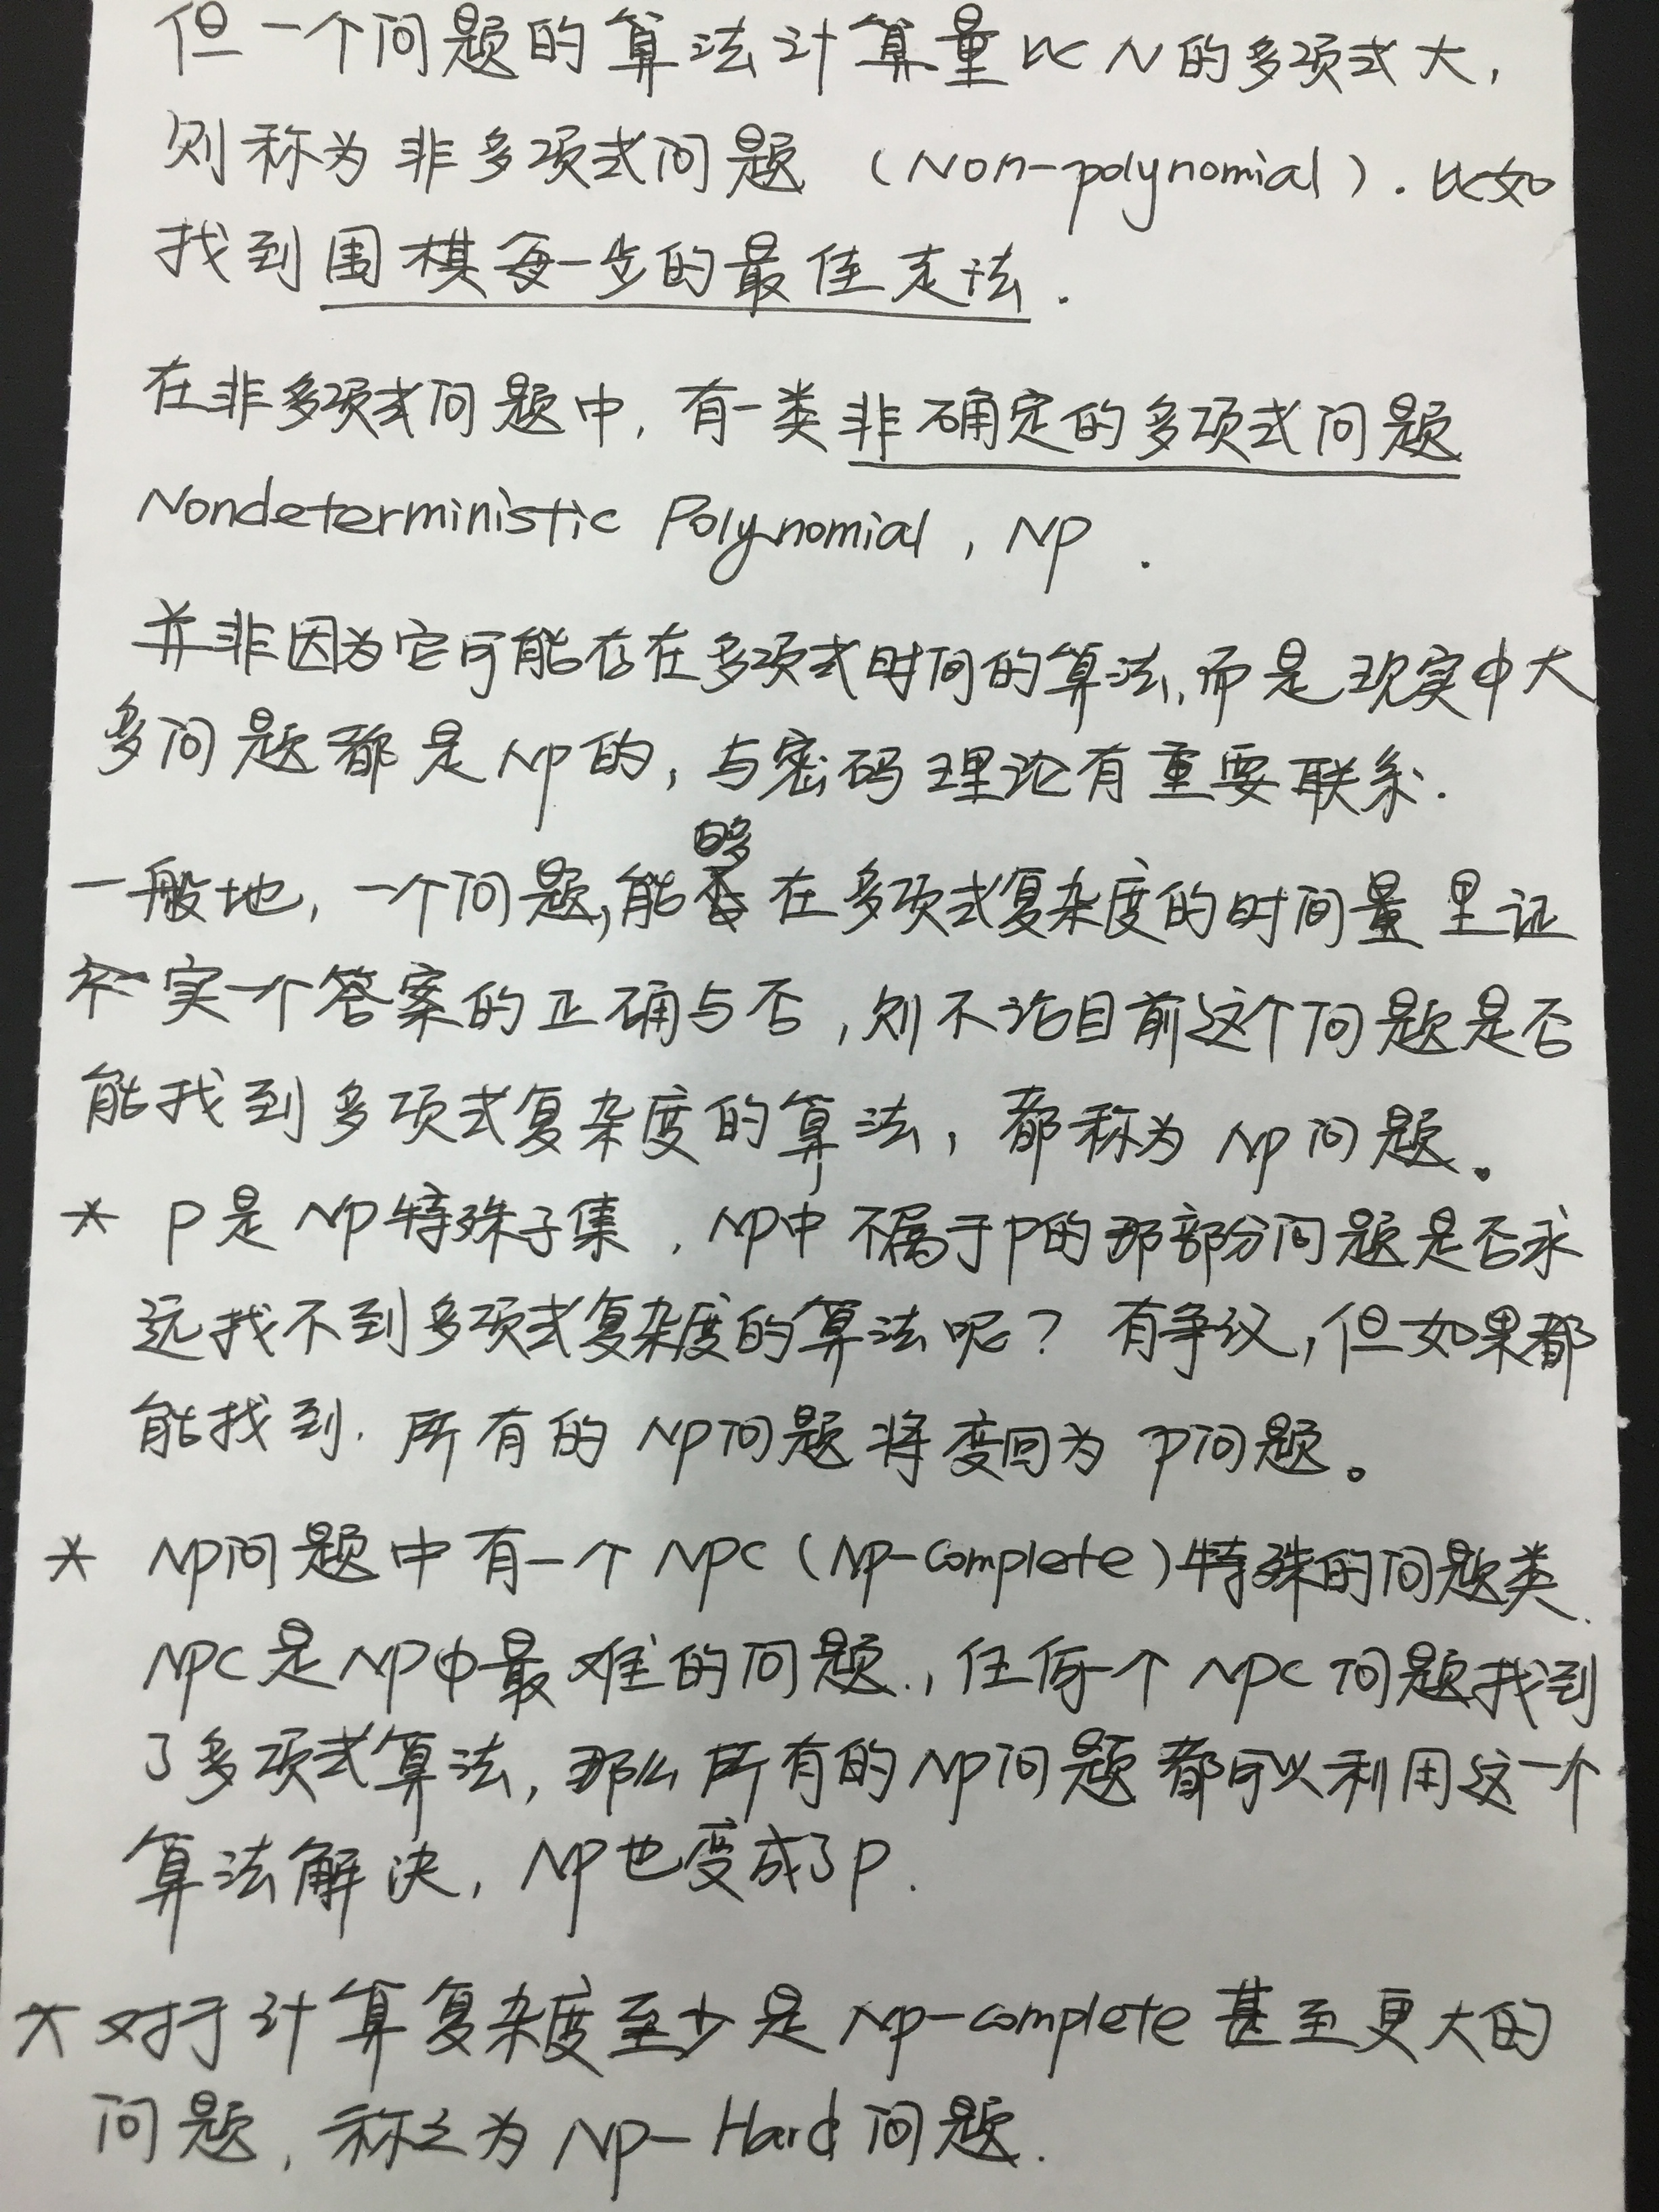 但一个问题的算法计算量比N的多项式大,
则称为非多项式问题 (Non-polynomial). 比如
找到围棋每一步的最佳走法.
在非多项式问题中, 有一类非确定的多项式问题
Nondeterministic Polynomial, NP.
并非因为它可能存在多项式时间的算法, 而是现实中大
多问题都是NP的, 与密码理论有重要联系.
一般地, 一个问题, 能够在多项式复杂度的时间量里证
实一个答案的正确与否, 则不论目前这个问题是否
能找到多项式复杂度的算法, 都称为NP问题。
* P是NP特殊子集, NP中不属于P的那部分问题是否永
远找不到多项式复杂度的算法呢? 有争议, 但如果都
能找到. 所有的NP问题将变回为P问题。
* NP问题中有一个NPC (NP-complete) 特殊的问题类.
NPC是NP中最难的问题., 任何一个NPC问题找到
了多项式算法, 那么所有的NP问题都可以利用这一个
算法解决, NP也变成了P.
* 对于计算复杂度至少是NP-complete甚至更大的
问题, 称之为NP-Hard问题.